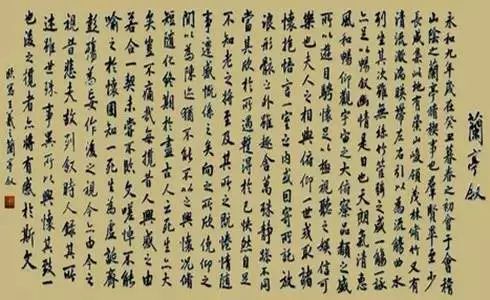 蘭亭敘
永和九年歲在癸丑暮春之初會于會稽
山陰之蘭亭脩稧事也羣賢畢至少
長咸集此地有崇山峻領茂林脩竹又有
清流激湍映帶左右引以為流觴曲水
列坐其次雖無絲竹管弦之盛一觴一詠
亦足以暢叙幽情是日也天朗氣清惠
風和暢仰觀宇宙之大俯察品類之盛
所以遊目騁懷足以極視聽之娛信可
樂也夫人之相與俯仰一世或取諸
懷抱悟言一室之內或因寄所託放
浪形骸之外雖趣舍萬殊靜躁不同
當其欣於所遇蹔得於己怏然自足
不知老之將至及其所之既惓情隨
事遷感慨係之矣向之所欣俛仰之
間以為陳迹猶不能不以之興懷況脩
短隨化終期於盡古人云死生亦大
矣豈不痛哉每攬昔人興感之由
若合一契未嘗不臨文嗟悼不能
喻之於懷固知一死生為虛誕齊
彭殤為妄作後之視今亦由今之
視昔悲夫故列叙時人錄其所
述雖世殊事異所以興懷其致一
也後之攬者亦將有感於斯文
王羲之蘭亭叙